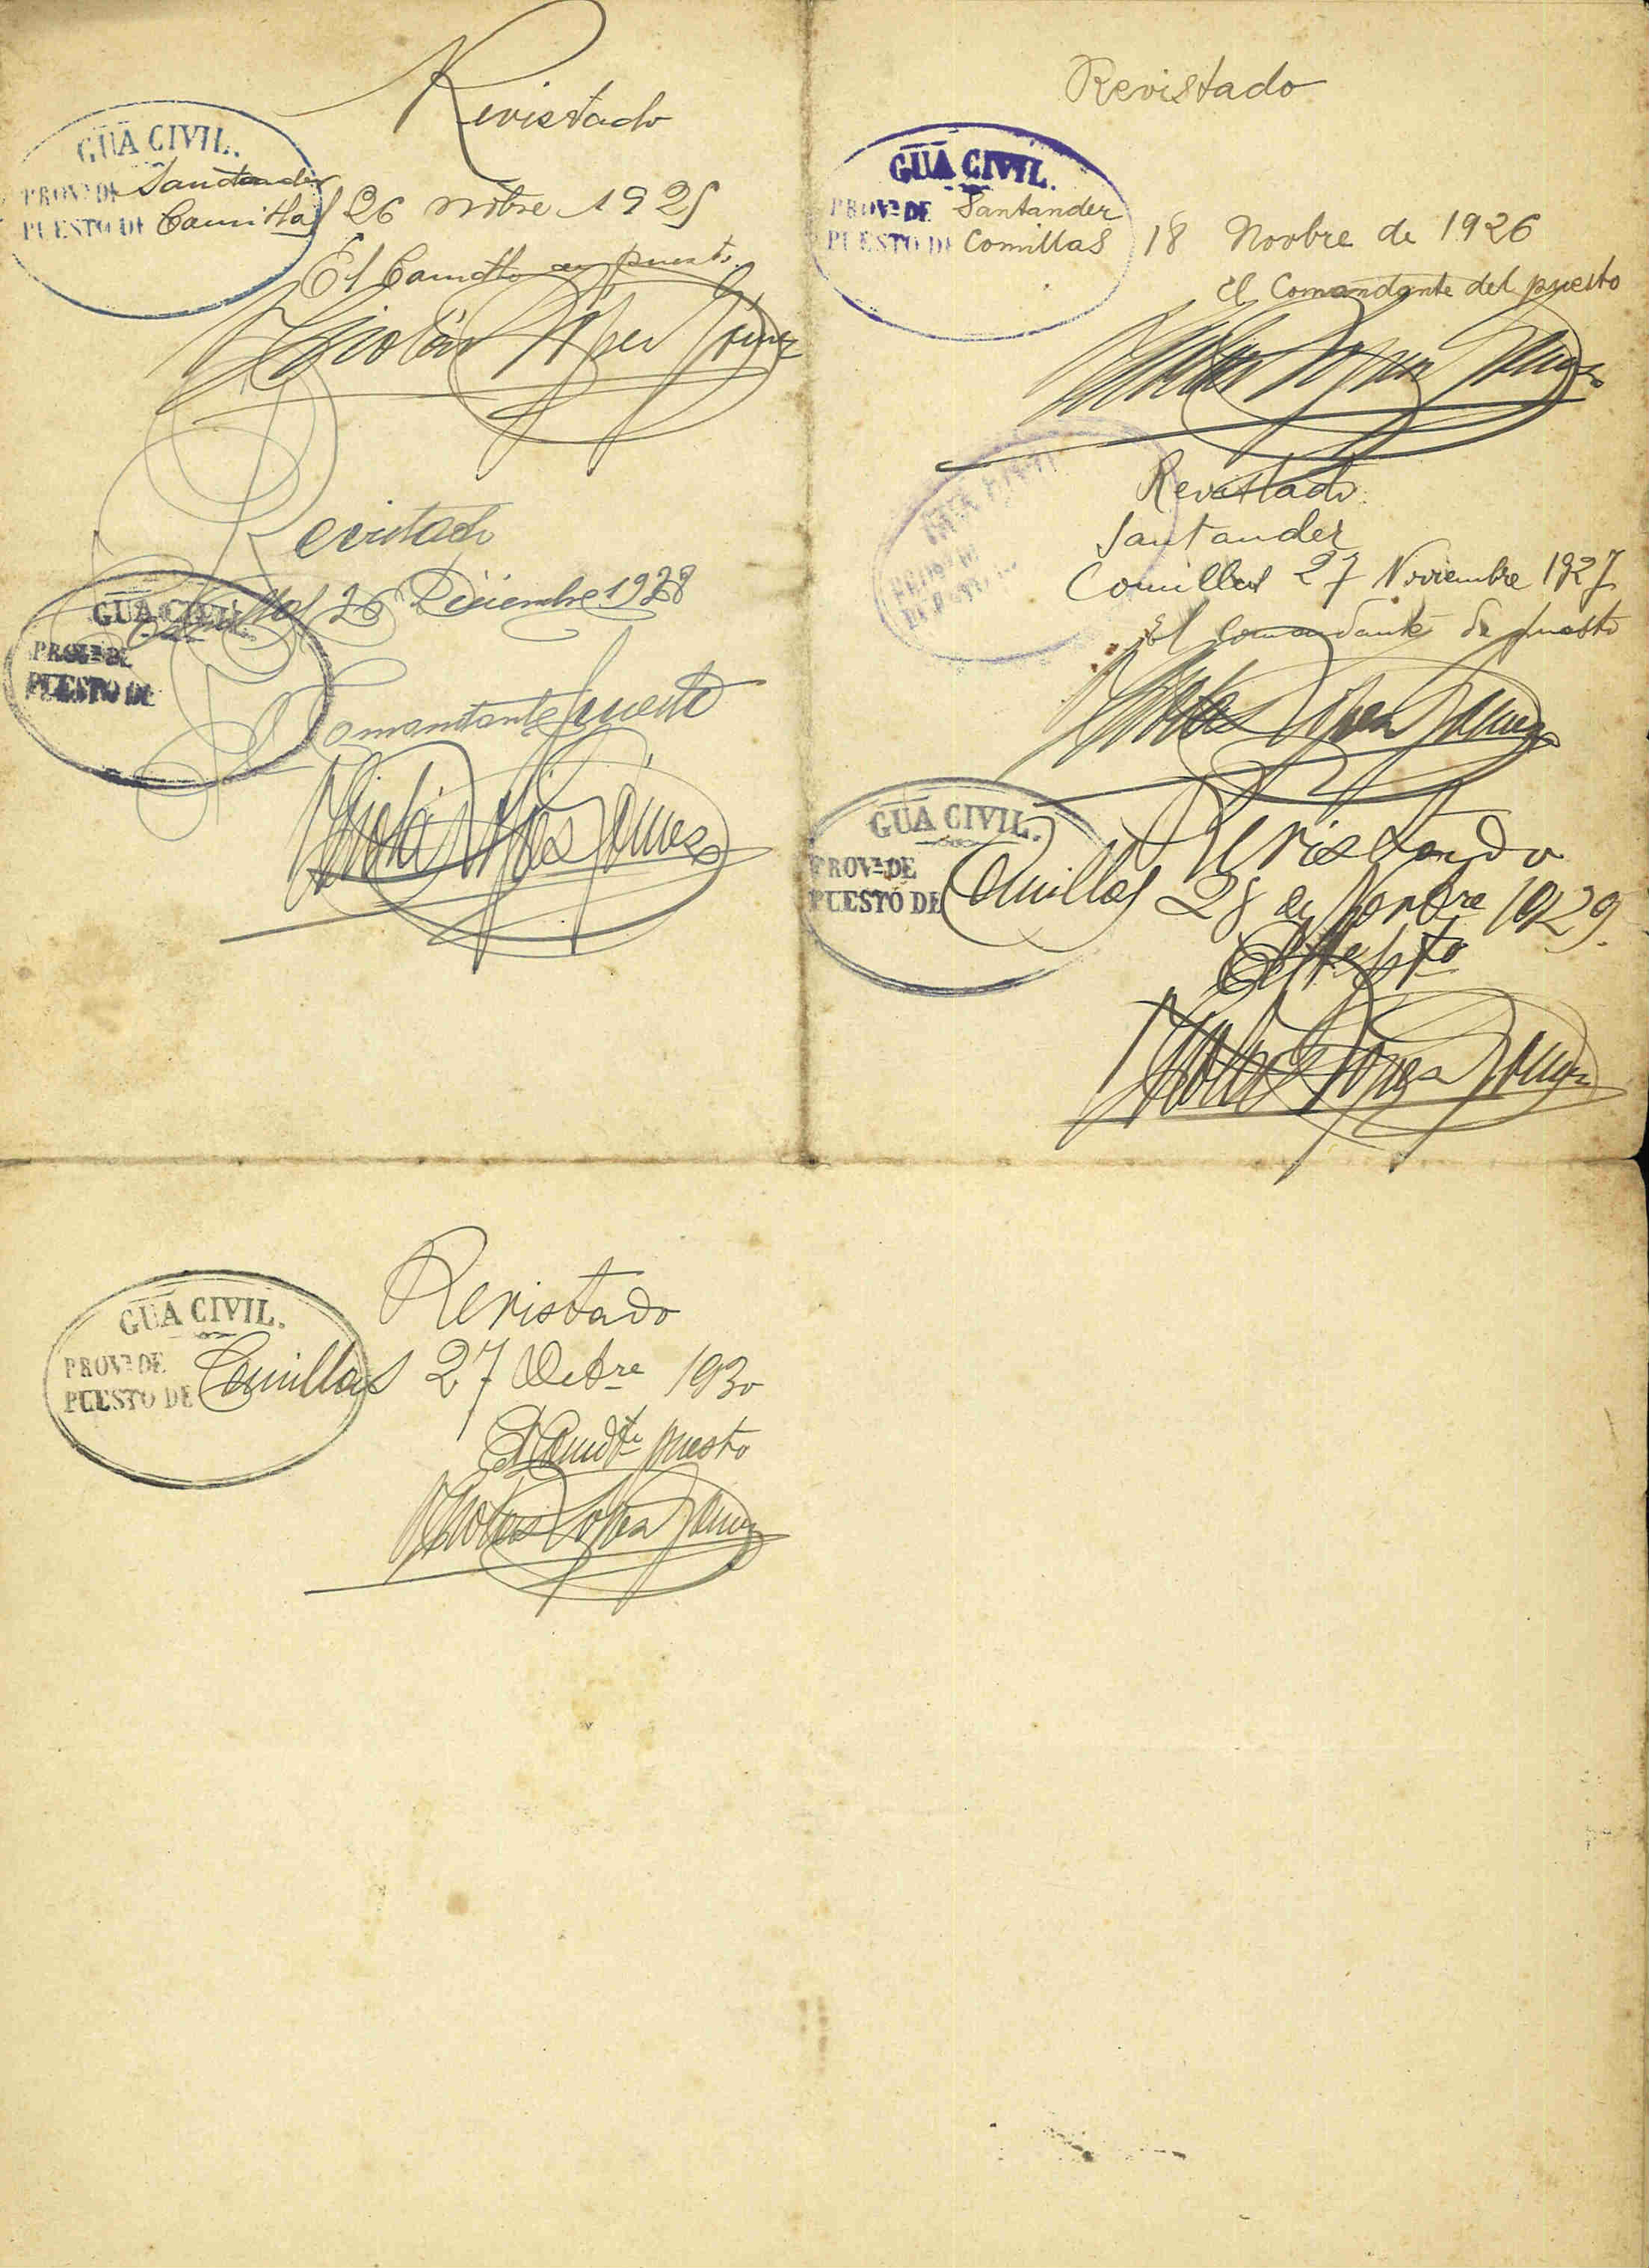 Revistado
GUA CIVIL.
PROVa DE Santander
PUESTO DE Comillas 26 nobre 1925
El Comdte de puesto
Nicolás López Gómez
Revistado
Comillas 26 Diciembre 1928
GUA CIVIL.
PROVa DE
PUESTO DE
Comandante puesto
Nicolás López Gómez
Revistado
GUA CIVIL.
PROVa DE Santander
PUESTO DE Comillas 18 Novbre de 1926
el Comandante del puesto
Nicolás López Gómez
Revistado
Santander
Comillas 27 Noviembre 1927
El Comandante de puesto
GUA CIVIL
Nicolás López Gómez
Revistado
GUA CIVIL.
PROVa DE
PUESTO DE Comillas 28 de Novbre 1929.
Nicolás López Gómez
Revistado
GUA CIVIL.
PROVa DE
PUESTO DE Comillas 27 Octbre 1930
El Comdte puesto
Nicolás López Gómez